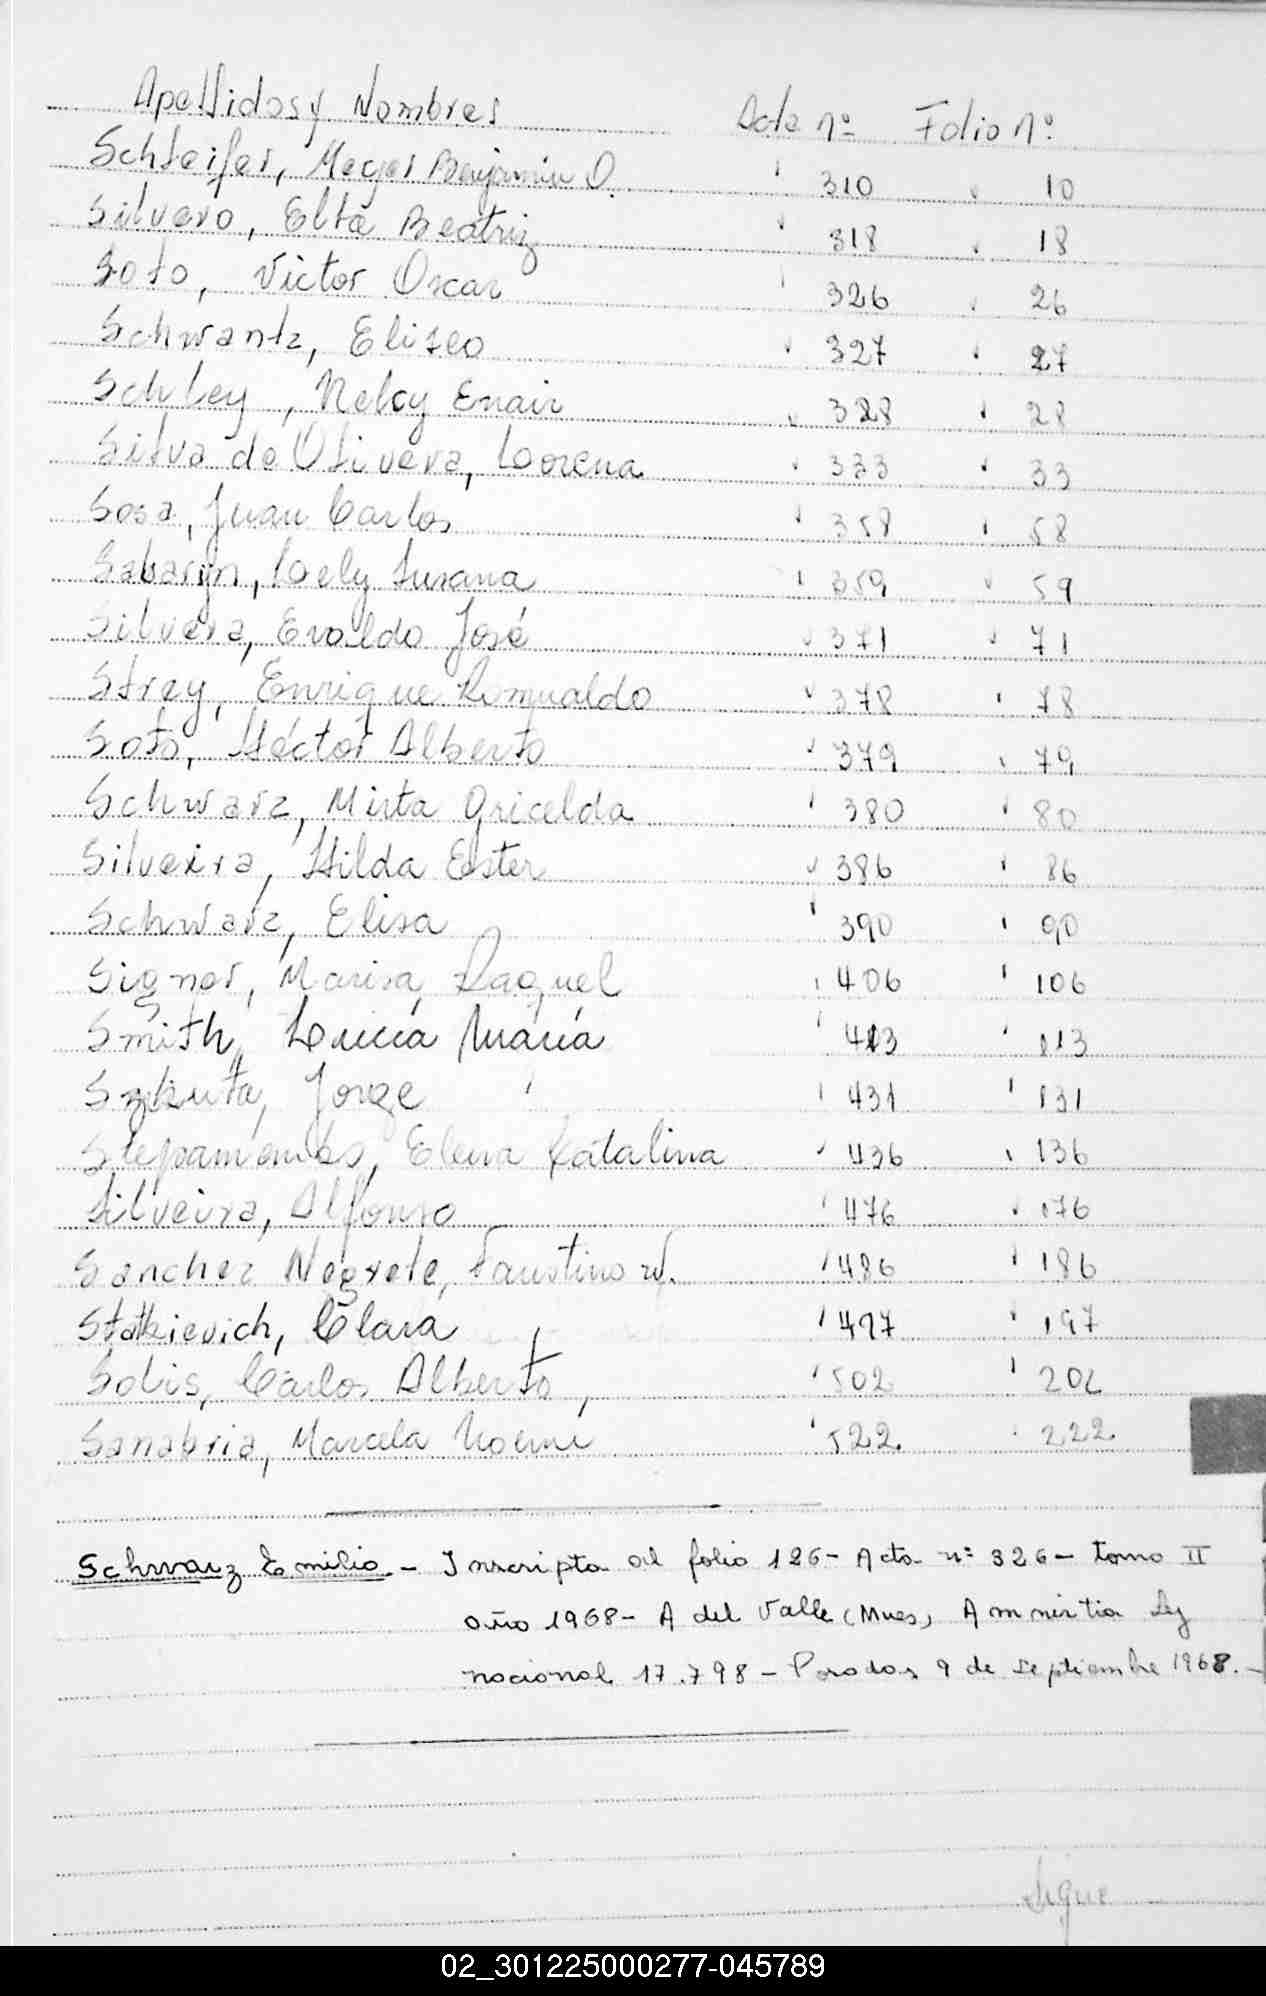 Apellidos y Nombres Acta nº Folio nº
Schleifer, Meyer Benjamin O. 310 10
Silvero, Elba Beatriz 318 18
Soto, Victor Oscar 326 26
Schwantz, Eliseo 327 27
Schley, Nelcy Enair 328 28
Silva de Olivera, Lorena 333 33
Sosa, Juan Carlos 358 58
Loely Susana 359 59
Silvera, Evaldo José 371 71
Strey, Enrique Romualdo 378 78
Soto, Héctor Alberto 379 79
Schwarz, Mirta Gricelda 380 80
Silveira, Hilda Ester 386 86
Schwarz, Elisa 390 90
Signor, Marisa Raquel 406 106
Smith, Lucía María 413 113
Jorge 431 131
Elena Catalina 436 136
Silveira, Alfonso 476 176
Sanchez Negrete, Faustino 486 186
Statkievich, Clara 497 197
Solis, Carlos Alberto, 502 202
Sanabria, Marcela Noemi 522 222
Schwarz Emilio - Inscripta al folio 126 - Acta nº 326 - tomo II
año 1968 - A del Valle (Mnes) Amnistia Ley
nacional 17.798 - Posadas 9 de septiembre 1968. -
Sigue
02_301225000277-045789